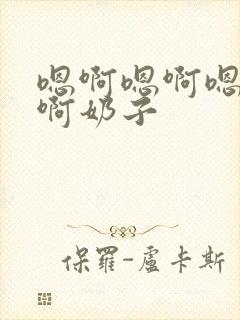 嗯啊嗯啊嗯
啊奶子
保羅-盧卡斯